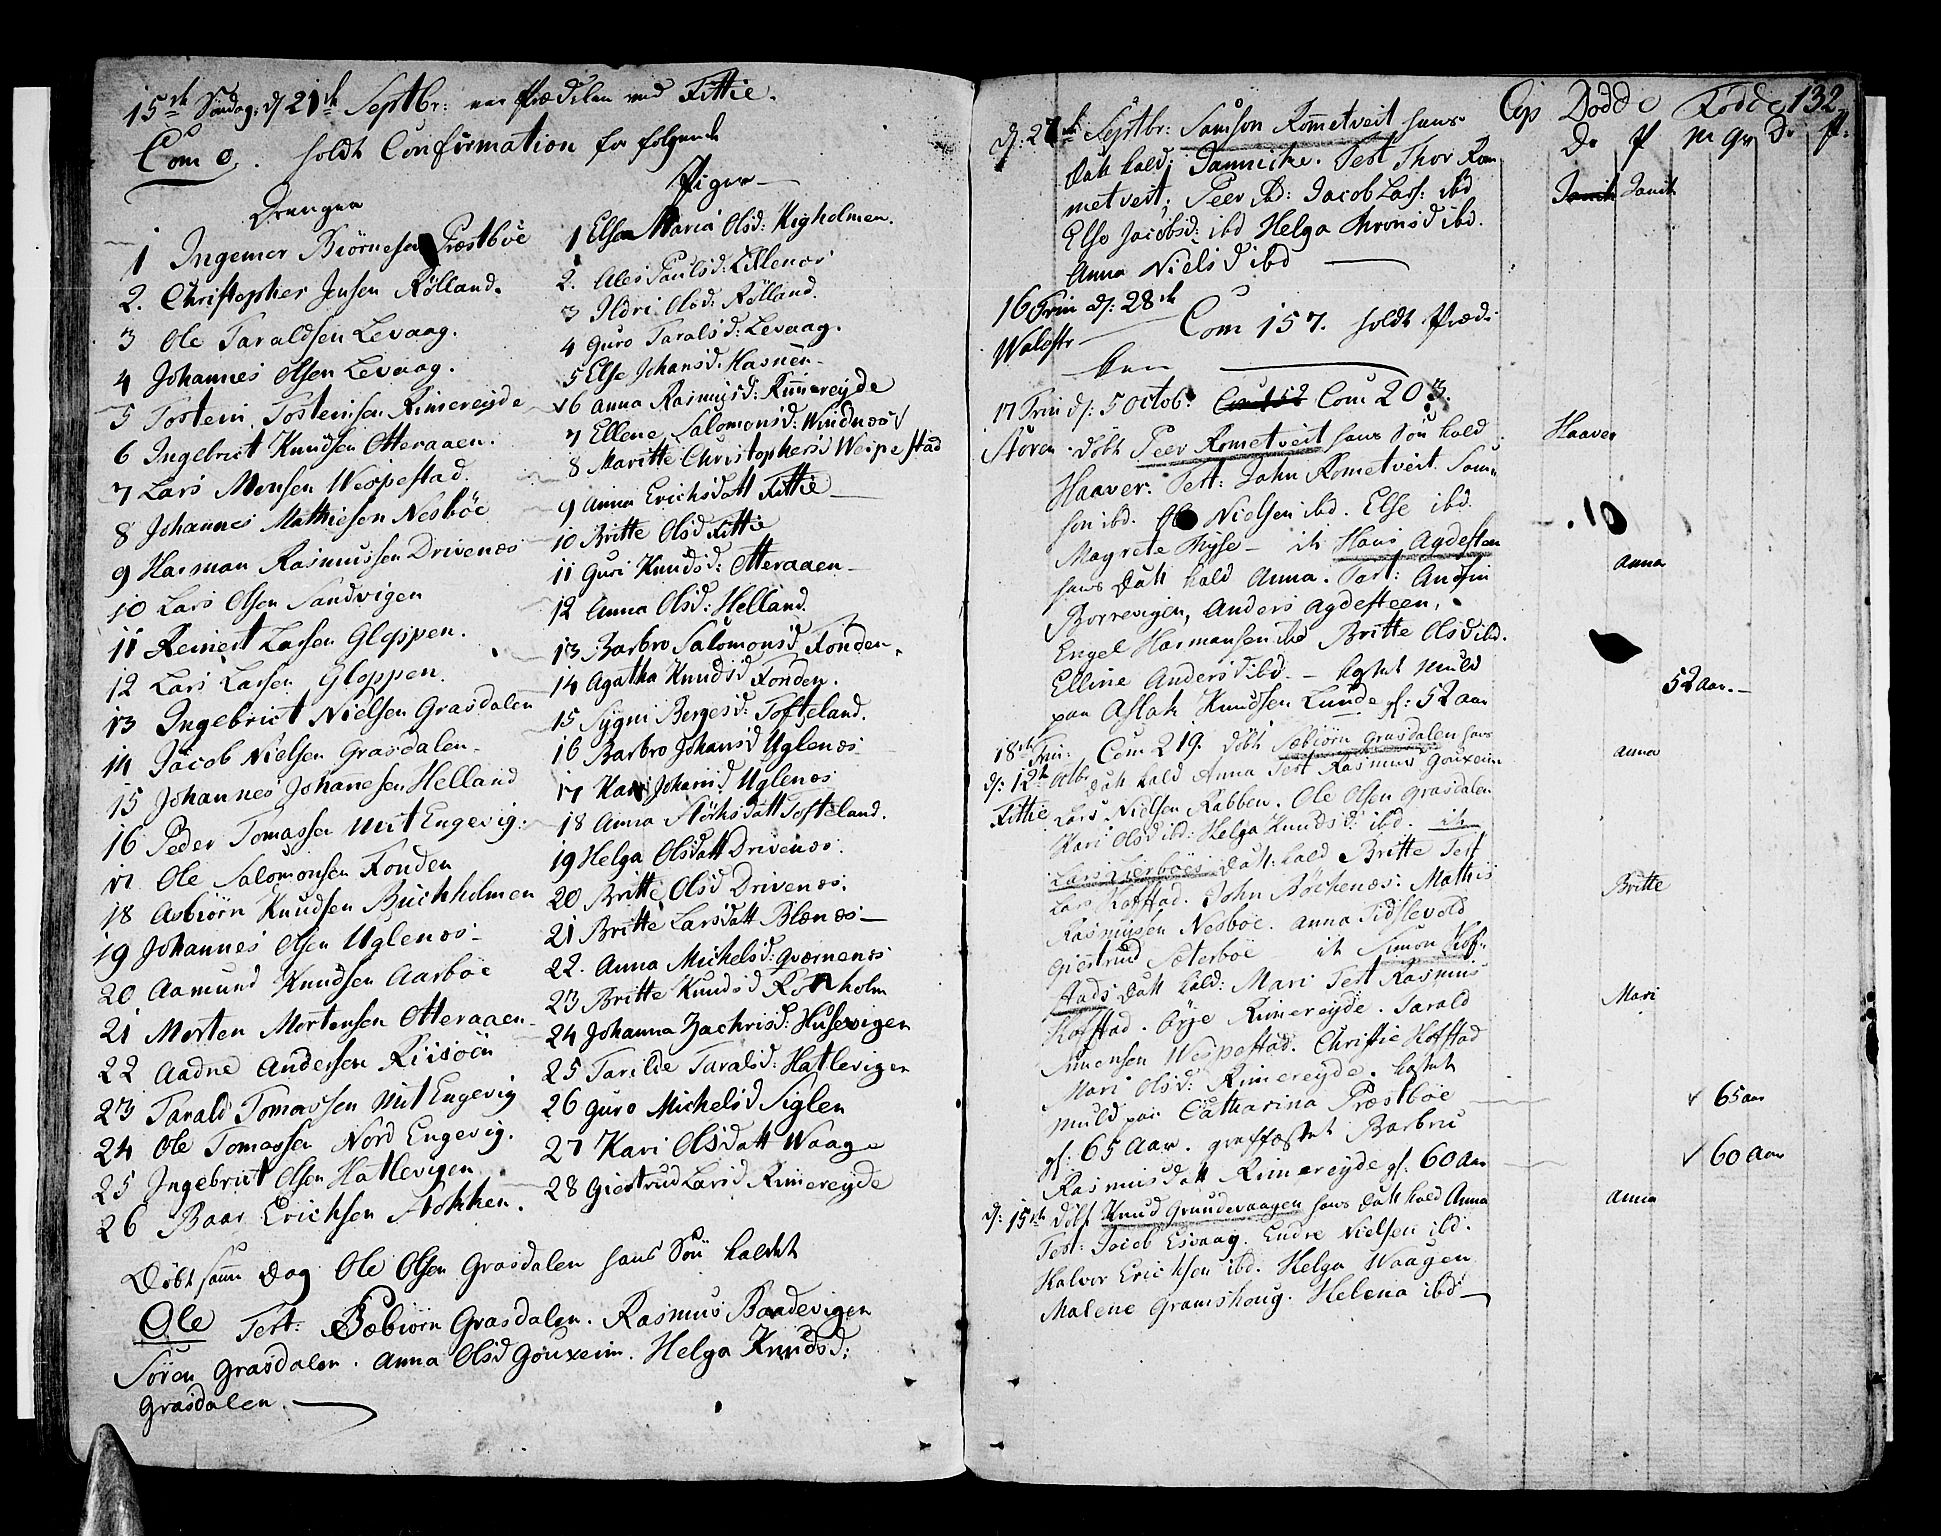 15de Søndag: d/ 21de Septbr: var Prædiken ved Fittie.
Com 0, holdt Confirmation for følgende
Drenger
1 Ingemer Biörnesen Præstböe
2. Christopher Jensen Rölland.
3 Ole Taraldsen Levaag.
4 Johannes Olsen Levaag.
5 Tostein Tosteinsen Rimereyde
6 Ingebrict Knudsen Otteraaen.
7 Lars Monsen Wespestad.
8 Johannes Mathiesen Nesböe
9 Harman Rasmussen Drivenæs
10 Lars Olsen Sandvigen
11 Reinert Larsen Gloppen.
12 Lars Larsen Gloppen.
13 Ingebrict Nielsen Grasdalen
14 Jacob Nielsen Grasdalen
15 Johannes Johannesen Helland
16 Peder Tomassen Mit Engevig.
17 Ole Salomonsen Fonden
18 Asbiörn Knudsen Buchholmen
19 Johannes Olsen Uglenæs
20 Aamund Knudsen Aarböe
21 Morten Mortensen Otteraaen
22 Aadne Andersen Riisöen
23 Tarald Tomassen Mit Engevig
24 Ole Tomassen Nord Engevig.
25 Ingebrict Olsen Hatlevigen
26 Baar Erichsen Stokken.
Piger
1 Elsa Maria Olsd: Kigholmen.
2. Ales Paulsd: Lillenæs
3 Ildri Olsd: Rölland.
4 Guro Taralsd: Levaag.
5 Else Johansd: Hasneen
6 Anna Rasmusd: Rimereyde
7 Ellene Salomonsd: Windnæs
8 Maritte Christophersd Wespestad
9 Anna Erichsdatt Fittie
10 Britte Olsd Fittie
11 Guri Knudsd: Otteraaen
12 Anna Olsd: Helland.
13 Barbro Salomonsd Fonden.
14 Agatha Knudsd Fonden.
15 Sygni Bergesd: Tofteland.
16 Barbro Johansd Uglenæs
17 Kari Johansd Uglenæs
18 Anna Störksdatt Tofteland.
19 Helga Olsdatt Drivenæs.
20 Britte Olsd Drivenæs.
21 Britte Larsdatt Blænæs
22. Anna Michelsd: Qværnenæs
23 Britte Knudsd Rönholm
24 Johanna Zachrisd: Husevigen
25 Tarilde Taralsd: Hatlevigen
26 Guro Michelsd Siglen
27 Kari Olsdatt Waage
28 Giertrud Larsd Rimereyde
Döbt samme Dag Ole Olsen Grasdalen hans Sön kaldet
Ole Test: Sæbiörn Grasdalen. Rasmus Baadevigen
Sören Grasdalen. Anna Olsd Gouxeim. Helga Knudsd:
Grasdalen.
Cop Dödde Fødde 132
D. P M Qv D. P.
d: 27de Septbr: Samson Rommetveit hans
datt kald: Jannicke. Test Thor Rom
metveit; Peer ibd: Jacob Lass: ibd
Else Jacobsd: ibd Helga Thronsd ibd.
Anna Nielsd ibd
Janik Janik
16 Trin d: 28de
Walestr
Com 157. holdt Prædi
ken
17 Trin d: 5 Octob: Com 152 Com 203.
Støren. döbt Peer Rometveit hans Sön kald
Haaver
Haaver. Test: John Rometveit. Sam
son ibd. Ole Nielsen ibd. Else ibd.
10
Magrete Thyse it Hans Agdesten
hans Datt kald Anna. Test: Ansten
Anna
Borrevigen, Anders Agdesteen,
Engel Harmansen ibd Britte Olsd ibd.
Elline Andersd ibd. kastet Muld
paa Aslak Knudsen Lunde gl: 52 aar
52 aar.
18de Trin: Com 219. döbt Sæbiörn Grasdalen hans
d: 12te Octbr Datt kald Anna Test Rasmus Gouxeim
Anna
Fittie Lars Nielsen Rabben. Ole Olsen Grasdalen
Kari Olsd ibd: Helga Knudsd: ibd. it
Lars Lierböes Datt: kald Britte Test
Lars Hofstad. John Böchenæs. Mathis
Britte
Rasmusen Nesböe. Anna Tidslevold
Giertrud Sæterböe it Simon Hof-
stads Datt kald: Mari Test Rasmus
Mari
Hofstad. Örje Rimereyde. Tarald
Simensen Wespestad. Christie Hofstad
Mari Olsd: Rimereyde. kastet
Muld paa Catharina Præstböe
65 aar
gl: 65 Aar. graffæstet Barbru
Rasmusdatt Rimereyde gl: 60 Aar
60 aar
d: 15de döbt Knud Grundevaagen hans datt kald Anna
Anna
Test: Jacob Esvaag. Endre Nielsen ibd.
Halvor Erichsen ibd. Helga Waagen
Malene Gramshoug. Helena ibd